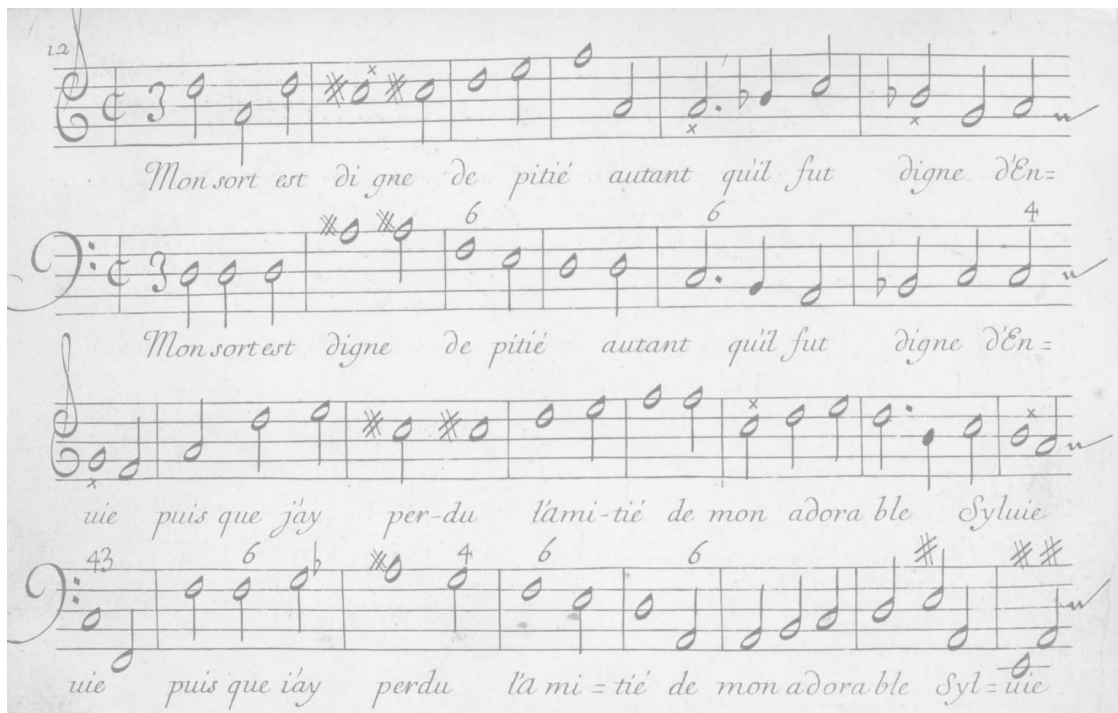 12
3
Mon sort est di gne de pitié autant qu'il fut digne d'En=
6 6 4
3
Mon sort est digne de pitié autant qu'il fut digne d'En=
uie puis que j'ay per-du l'ami-tié de mon adora ble Syluie
43 6 4 6 6
uie puis que i'ay perdu l'a mi=tié de mon adora ble Syl=uie